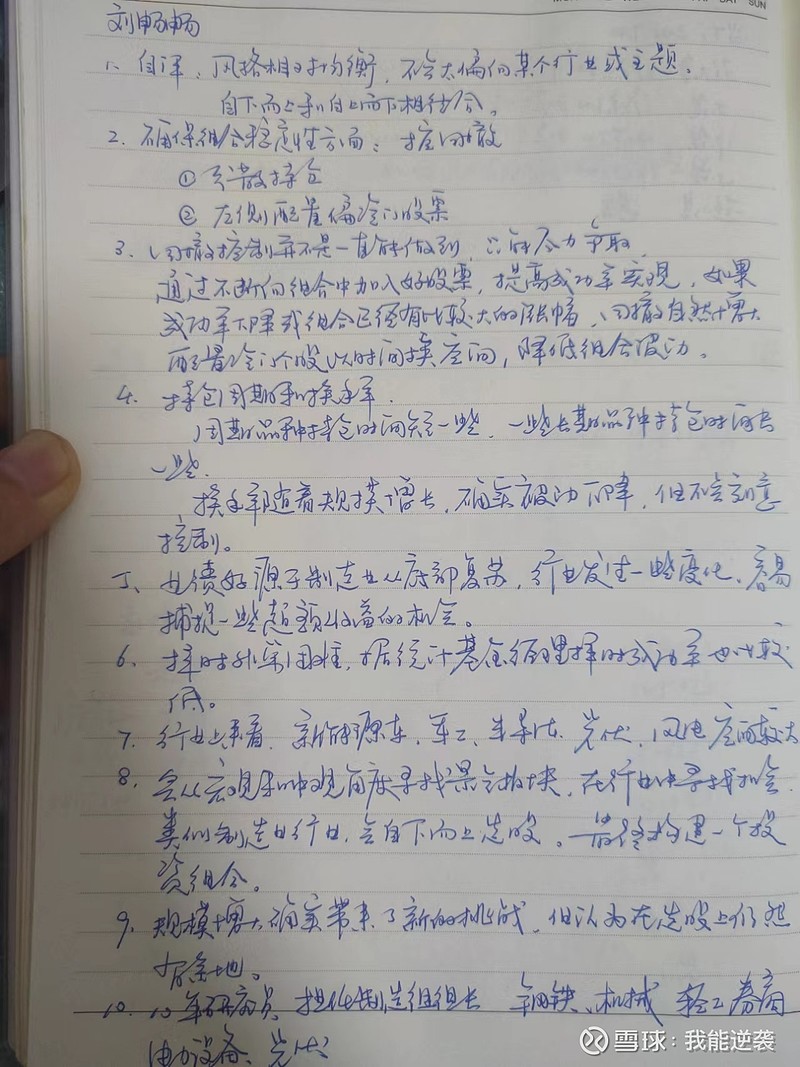 SUN
刘畅畅
1、自评:风格相对均衡,不会太偏向某个行业或主题。
自下而上和自上而下相结合。
2、确保组合稳定性方面:控回撤
①分散持仓
②左侧配置偏冷门股票
3、回撤控制并不是一直能做到,只能尽力争取
通过不断向组合中加入好股票,提高成功率实现,如果
成功率下降或组合已经有比较大的涨幅,回撤自然增大
配置冷门个股以时间换空间,降低组合波动。
4、持仓周期和换手率
周期品种持仓时间短一些,一些长期品种持仓时间长
一些。
换手率随着规模增长,确实被动下降,但不会刻意
控制。
5、业绩好源于制造业从底部复苏,行业发生一些变化,容易
捕捉一些超额收益的机会。
6、择时非常困难,据统计基金经理择时成功率也比较
低。
7、行业上来看,新能源车、军工、半导体、光伏、风电空间较大
8、会从宏观和中观角度寻找景气板块,在行业中寻找机会
类似制造业行业,会自下而上选股。最终构建一个投
资组合。
9、规模增大确实带来了新的挑战,但认为在选股上仍然
有余地。
10、10年研究员、担任制造组组长 钢铁、机械 轻工 券商
电力设备、光伏
雪球:我能逆袭